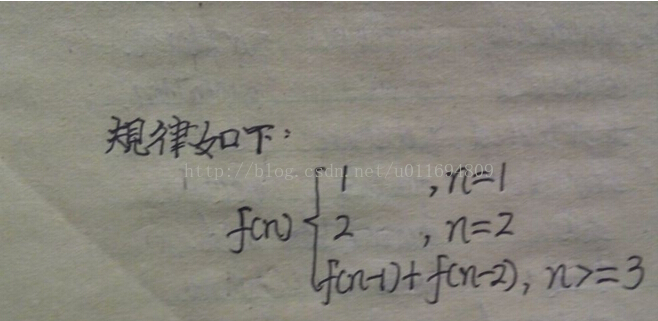 规律如下:
http://blog.csdn.net/u011694809
1 , n=1
f(n) { 2 , n=2
f(n-1)+f(n-2), n>=3